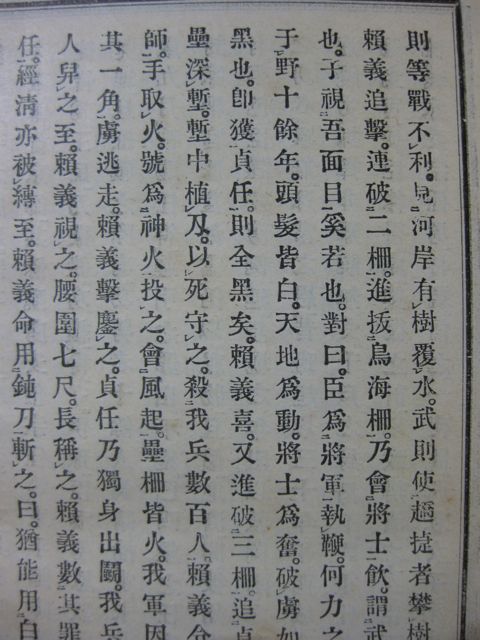 則等戰不利。見河岸有樹覆水。武則使趫捷者攀樹
賴義追擊。連破二柵。進拔鳥海柵。乃會將士飲。謂武
也。子視吾面目奚若也。對曰。臣爲將軍執鞭。何力之
于野十餘年。頭髮皆白。天地爲動。將士爲奮。破虜如
黑也。卽獲貞任。則全黑矣。賴義喜。又進破三柵。追貞
壘深塹。塹中植刀。以死守之。殺我兵數百人。賴義令
師。手取火。號爲神火投之。會風起。壘柵皆火。我軍因
其一角。虜逃走。賴義擊鏖之。貞任乃獨身出鬪。我兵
人舁之至。賴義視之。腰圍七尺。長稱之。賴義數其罪
任。經淸亦被縛至。賴義命用鈍刀斬之。曰。猶能用白